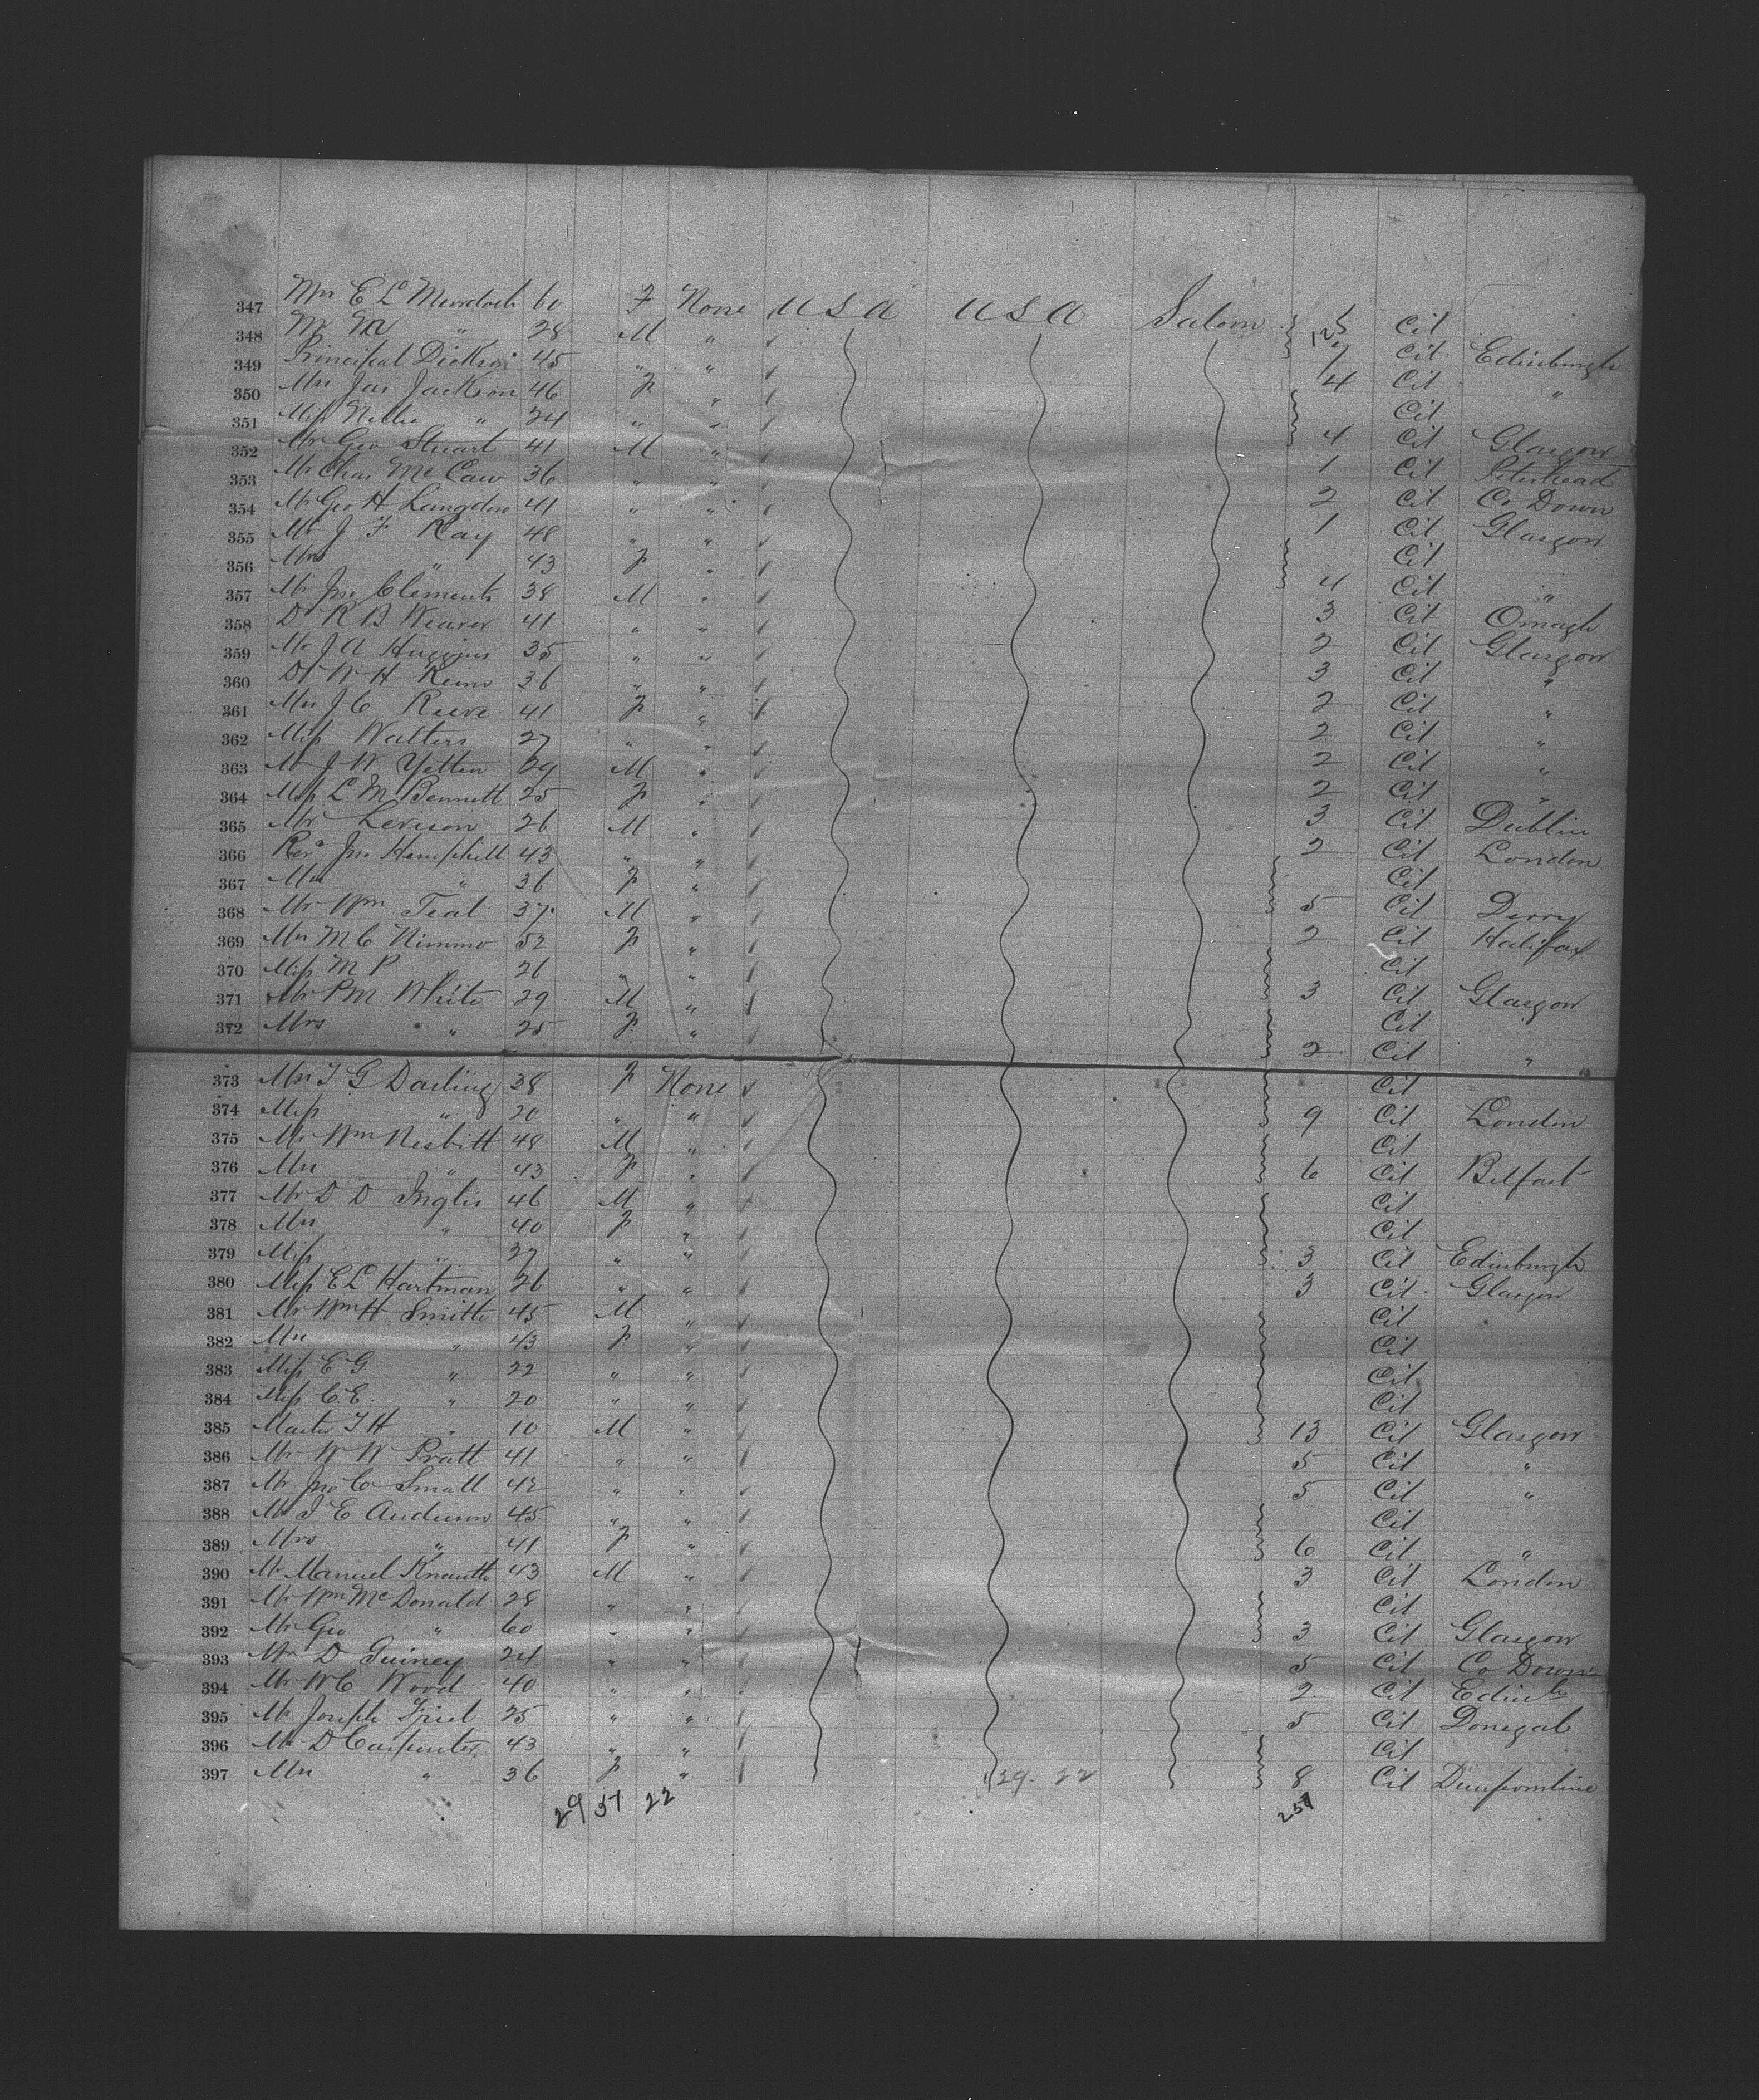 347 Mrs E L Murdoch 60 F None U S A U S A Saloon Cit
348 Mr " 28 M " 7 Cit Edinburgh
349 Principal Dickson 45 " " 4 Cit "
350 Mrs Jas Jackson 46 F " Cit
351 Miss Nellie " 24 " " 4 Cit Glasgow
352 Mr Geo Stuart 41 M " 1 Cit Peterhead
353 Mr Chas McCaw 36 " " 2 Cit Co Down
354 Mr Geo H Langdon 41 " " 1 Cit Glasgow
355 Mr J F Kay 48 " " Cit
356 Mrs " 43 F " 4 Cit "
357 Mr Jno Clements 38 M " 3 Cit Omagh
358 Dr R B Weaver 41 " " 2 Cit Glasgow
359 Mr J A Huggins 35 " " 3 Cit "
360 Dr W H 36 " " 2 Cit "
361 Mrs J C Reeve 41 F " 2 Cit "
362 Miss Walters 27 " " 2 Cit "
363 Mr J W Yetten 29 M " 2 Cit "
364 Miss L M Bennett 25 F " 3 Cit Dublin
365 Mr Levison 26 M " 2 Cit London
366 Revd Jno Hemphill 43 " " Cit
367 Mrs " 36 F " 5 Cit Derry
368 Mr Wm Teal 37 M " 2 Cit Halifax
369 Mrs M C Nimmo 52 F " Cit
370 Miss M P 26 " " 3 Cit Glasgow
371 Mr P M White 29 M " Cit
372 Mrs " 25 F " 2 Cit "
373 Mrs T G Darling 38 F None Cit
374 Miss " 20 " " 9 Cit London
375 Mr Wm Nesbitt 48 M " Cit
376 Mrs " 43 F " 6 Cit Belfast
377 Mr D D Inglis 46 M " Cit
378 Mrs " 40 F " Cit
379 Miss " 37 " " 3 Cit Edinburgh
380 Miss E L Hartman 26 " " 3 Cit Glasgow
381 Mr Wm H Smith 45 M " Cit
382 Mrs " 43 F " Cit
383 Miss E G " 22 " " Cit
384 Miss C.E. " 20 " " Cit
385 Master T H " 10 M " 13 Cit Glasgow
386 Mr W W Pratt 41 " " 5 Cit "
387 Mr Jno C Small 42 " " 5 Cit "
388 Mr J E 45 " " Cit
389 Mrs " 41 F " 6 Cit "
390 Mr Manuel Knauth 43 M " 3 Cit London
391 Mr Wm McDonald 28 " " Cit
392 Mr Geo " 60 " " 3 Cit Glasgow
393 Mr D Guiney 24 " " 5 Cit Co Down
394 Mr W C Wood 40 " " 2 Cit
395 Mr Joseph Friel 25 " " 5 Cit Donegal
396 Mr D Carpenter 43 " " Cit
397 Mrs " 36 F " 29. 22 8 Cit Dunfermline
29 37 22